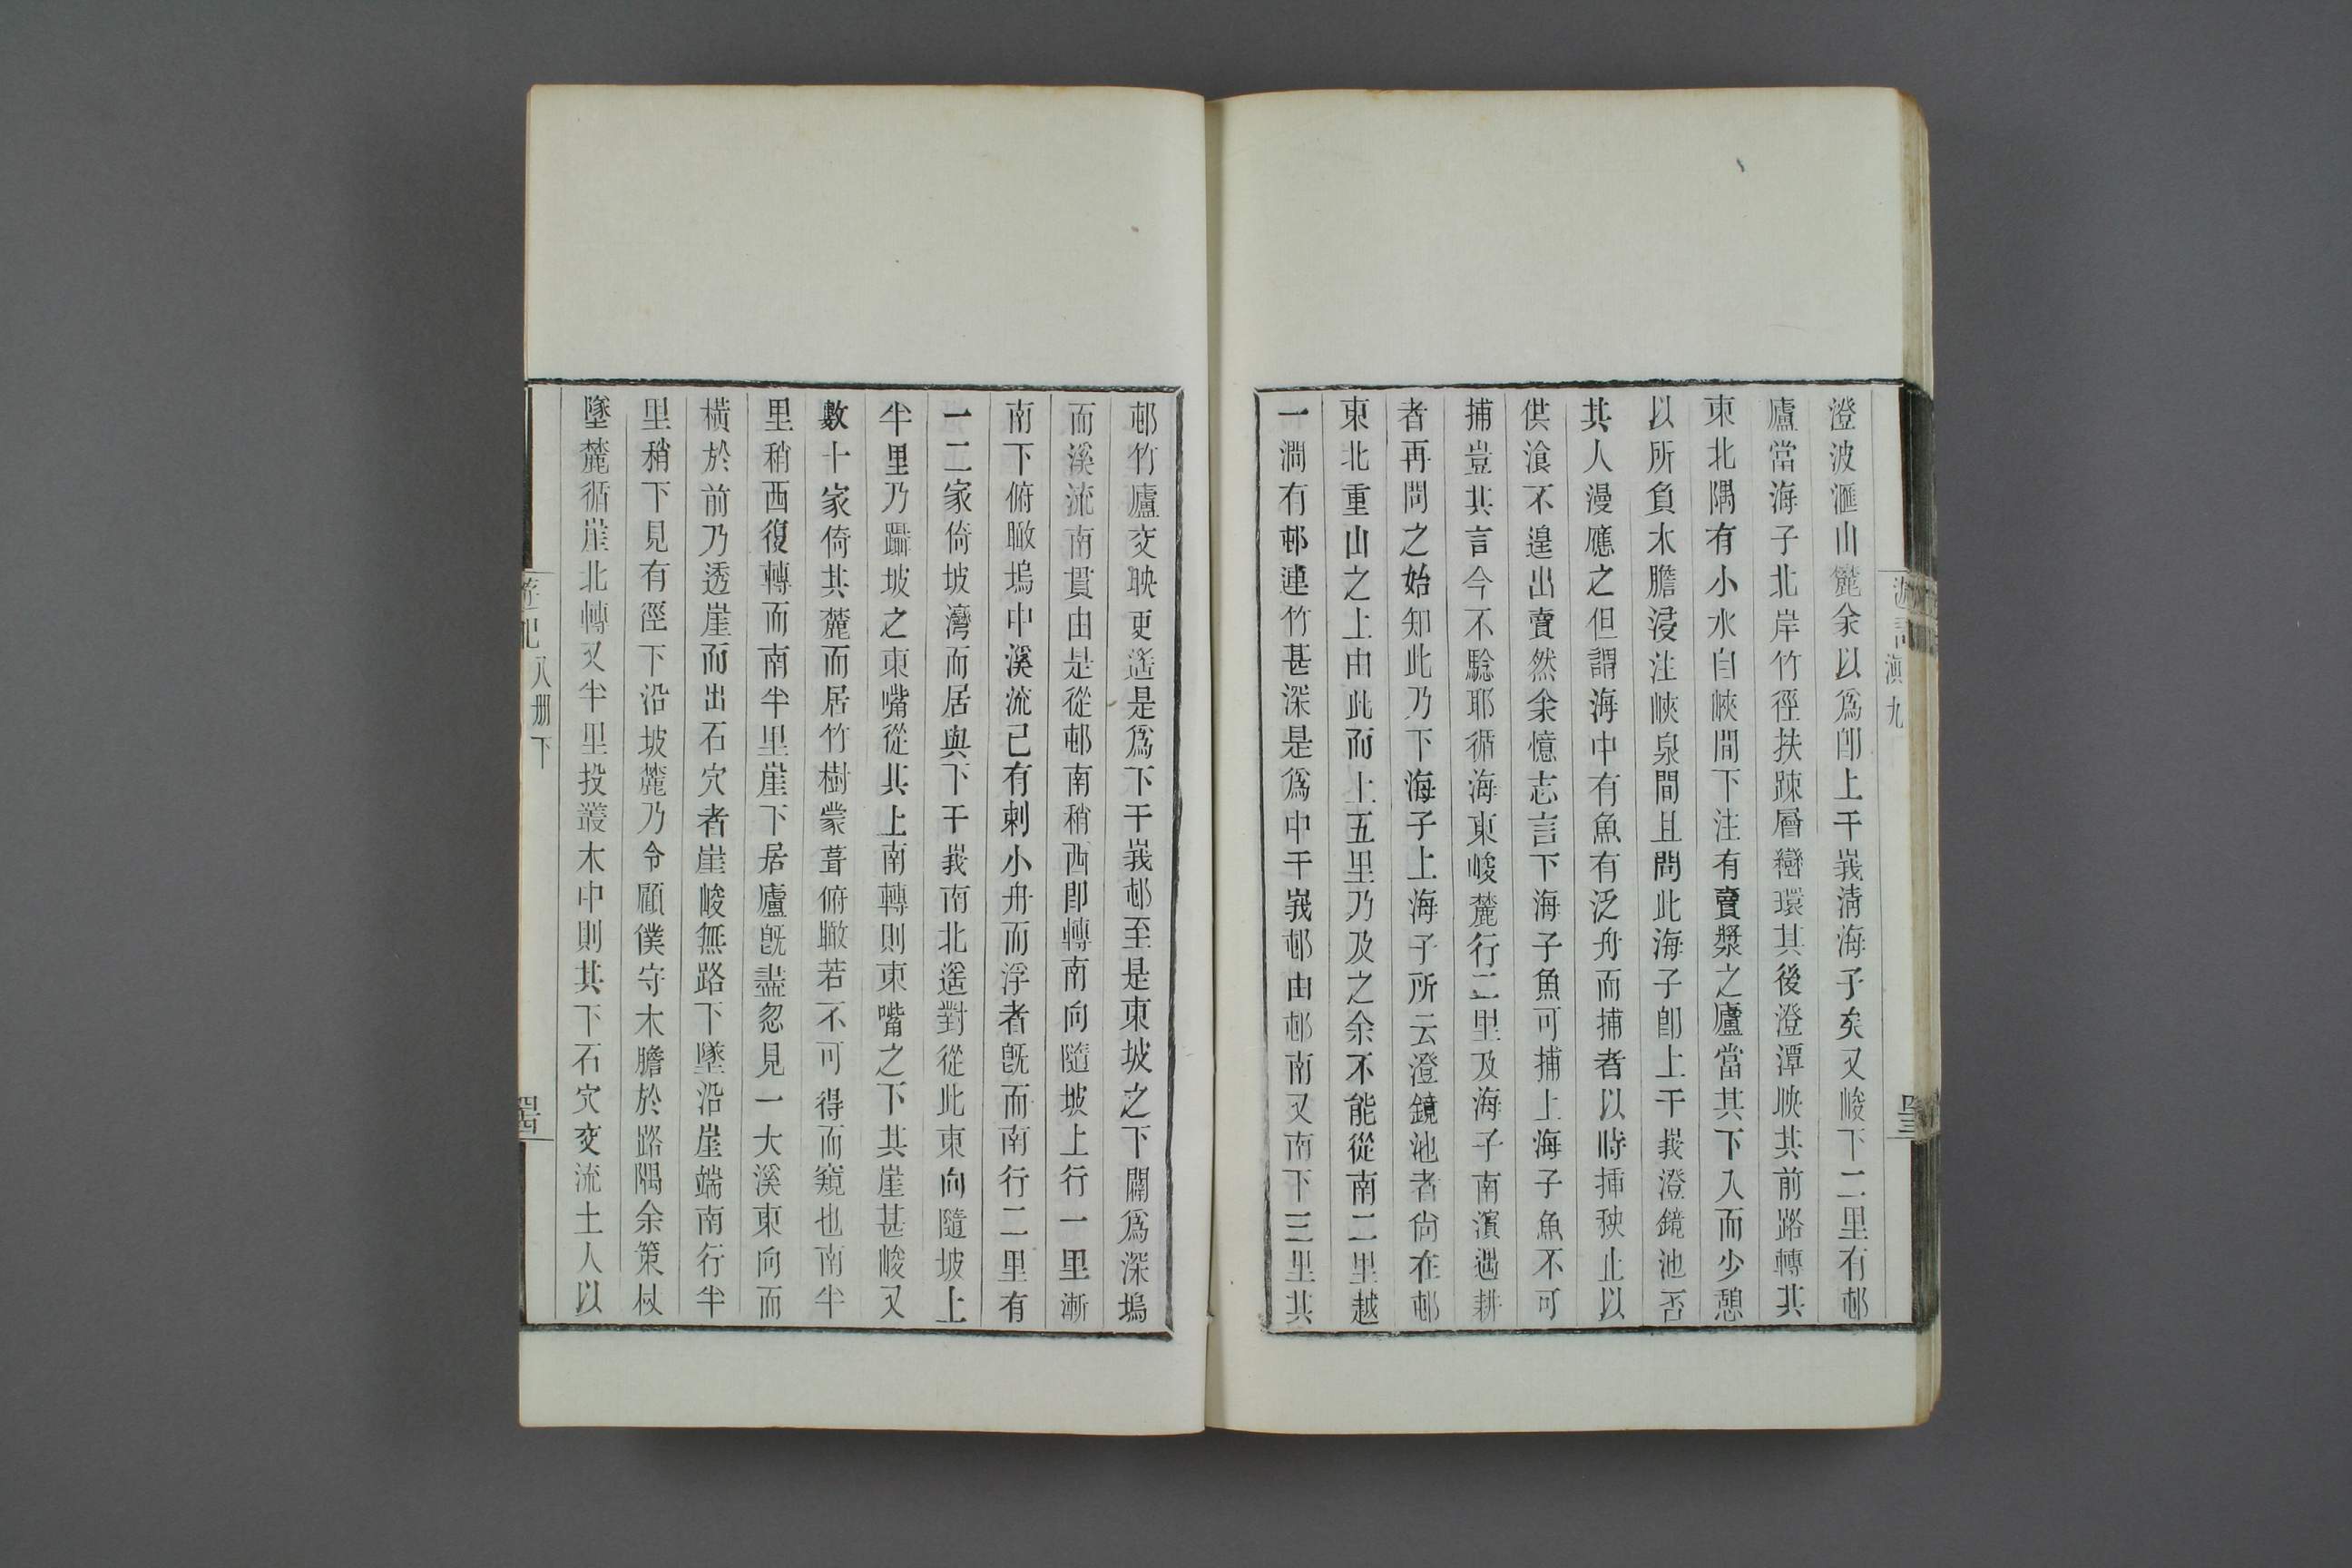 遊記 滇九
四三
澄波滙山麓余以爲卽上干峩淸海子矣又峻下二里有邨
廬當海子北岸竹徑扶踈層巒環其後澄潭映其前路轉其
東北隅有小水自峽間下注有賣漿之廬當其下入而少憩
以所負木膽浸注峽泉間且問此海子卽上干峩澄鏡池否
其人漫應之但謂海中有魚有泛舟而捕者以時揷秧止以
供湌不遑出賣然余憶志言下海子魚可捕上海子魚不可
捕豈其言今不騐耶循海東峻麓行二里及海子南濱遇耕
者再問之始知此乃下海子上海子所云澄鏡池者尙在邨
東北重山之上由此而上五里乃及之余不能從南二里越
一澗有邨連竹甚深是爲中干峩邨由邨南又南下三里其
邨竹廬交映更遙是爲下干峩邨至是東坡之下闢爲深塢
而溪流南貫由是從邨南稍西卽轉南向隨坡上行一里漸
南下俯瞰塢中溪流已有刺小舟而浮者旣而南行二里有
一二家倚坡灣而居與下干峩南北遙對從此東向隨坡上
半里乃躡坡之東嘴從其上南轉則東嘴之下其崖甚峻又
數十家倚其麓而居竹樹蒙葺俯瞰若不可得而窺也南半
里稍西復轉而南半里崖下居廬旣盡忽見一大溪東向而
橫於前乃透崖而出石穴者崖峻無路下墜沿崖端南行半
里稍下見有徑下沿坡麓乃令顧僕守木膽於路隅余策杖
墜麓循崖北轉又半里投叢木中則其下石穴交流土人以
遊記 八册下
四四